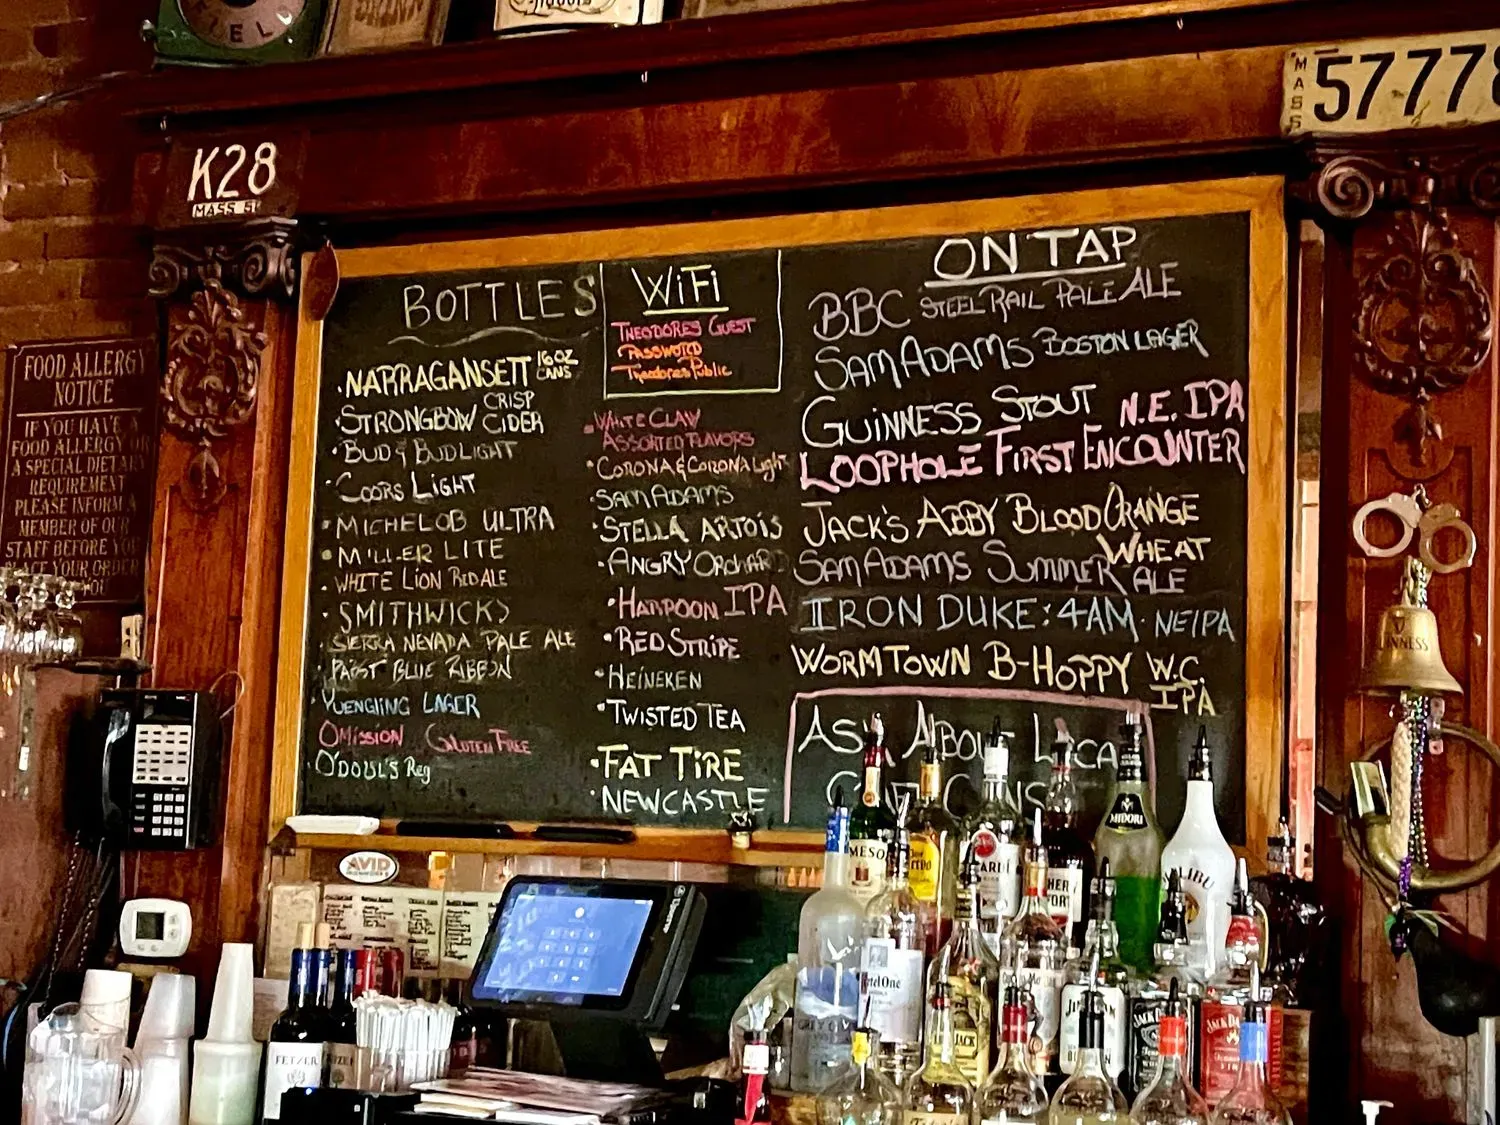 K28
MASS
MASS
57778
FOOD ALLERGY
NOTICE
IF YOU HAVE A
FOOD ALLERGY OR
A SPECIAL DIETARY
REQUIREMENT
PLEASE INFORM A
MEMBER OF OUR
STAFF BEFORE YOU
PLACE YOUR ORDER
BOTTLES
NARRAGANSETT 16 OZ CANS
STRONGBOW CRISP CIDER
BUD & BUD LIGHT
COORS LIGHT
MICHELOB ULTRA
MILLER LITE
WHITE LION RED ALE
SMITHWICKS
SIERRA NEVADA PALE ALE
PABST BLUE RIBBON
YUENGLING LAGER
OMISSION GLUTEN FREE
O'DOUL'S Reg
WiFi
THEODORES GUEST
PASSWORD
TheodoresPublic
WHITE CLAW
ASSORTED FLAVORS
CORONA & CORONA Light
SAM ADAMS
STELLA ARTOIS
ANGRY ORCHARD
HARPOON IPA
RED STRIPE
HEINEKEN
TWISTED TEA
FAT TIRE
NEWCASTLE
ON TAP
BBC STEEL RAIL PALE ALE
SAM ADAMS BOSTON LAGER
GUINNESS STOUT
N.E. IPA
LOOPHOLE FIRST ENCOUNTER
JACK'S ABBY BLOOD ORANGE
WHEAT
SAM ADAMS SUMMER ALE
IRON DUKE: 4AM. NEIPA
WORMTOWN B-HOPPY W.C.
IPA
ASK ABOUT LOCA
AVID
GUINNESS
MIDORI
FETZER
JACK